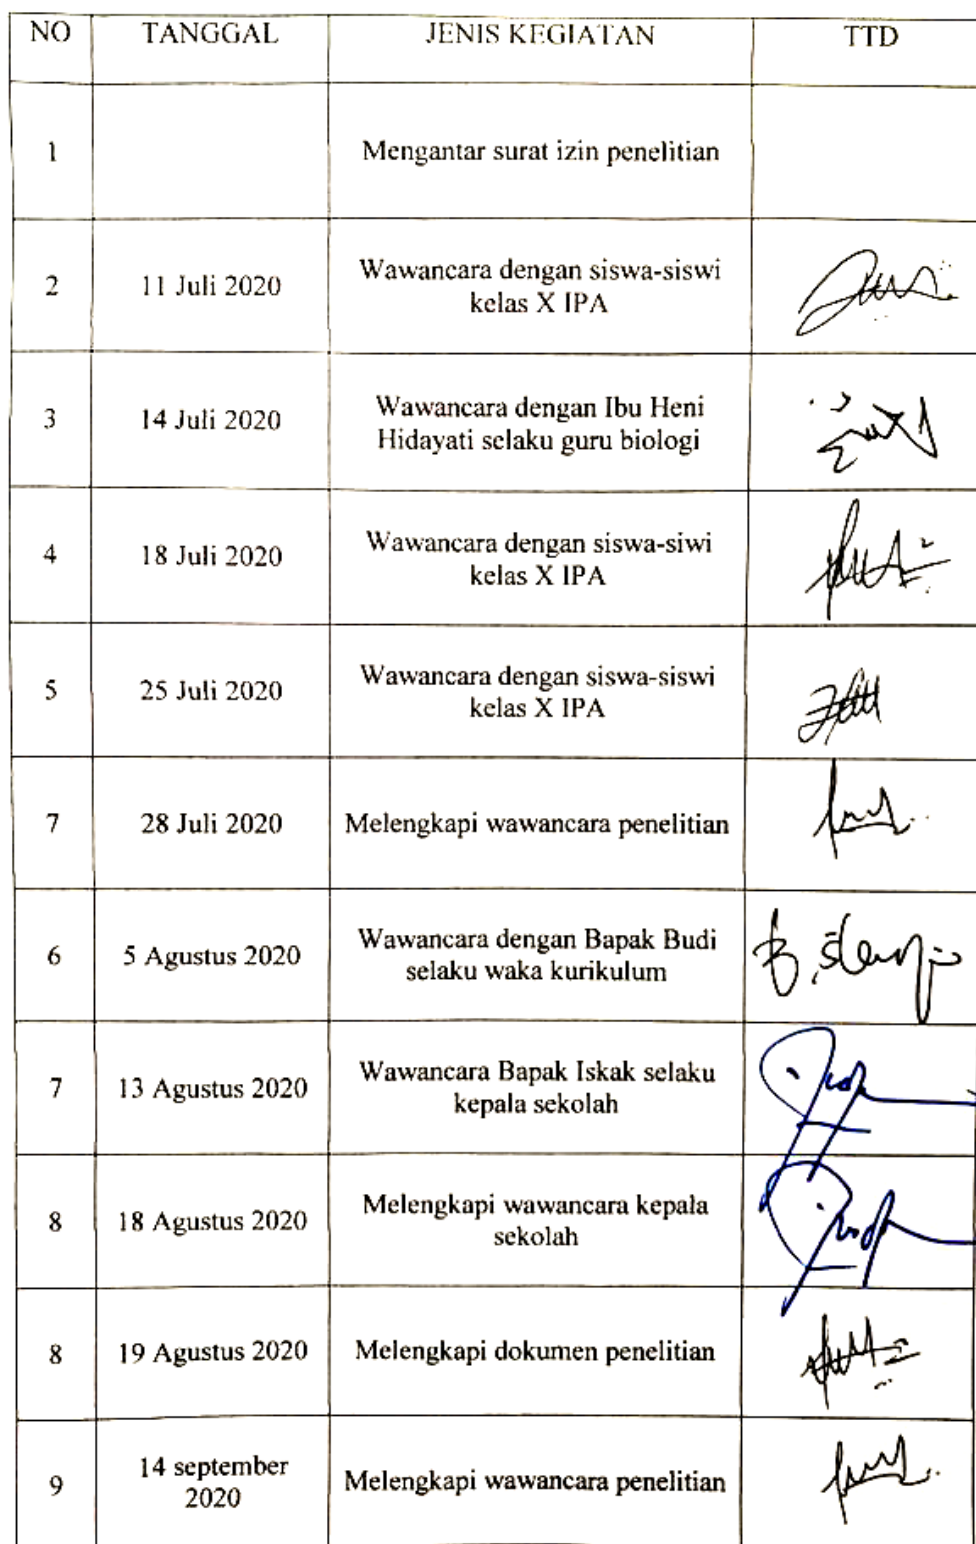 NO TANGGAL JENIS KEGIATAN TTD
1 Mengantar surat izin penelitian
2 11 Juli 2020 Wawancara dengan siswa-siswi
kelas X IPA
3 14 Juli 2020 Wawancara dengan Ibu Heni
Hidayati selaku guru biologi
4 18 Juli 2020 Wawancara dengan siswa-siwi
kelas X IPA
5 25 Juli 2020 Wawancara dengan siswa-siswi
kelas X IPA
7 28 Juli 2020 Melengkapi wawancara penelitian
6 5 Agustus 2020 Wawancara dengan Bapak Budi
selaku waka kurikulum
7 13 Agustus 2020 Wawancara Bapak Iskak selaku
kepala sekolah
8 18 Agustus 2020 Melengkapi wawancara kepala
sekolah
8 19 Agustus 2020 Melengkapi dokumen penelitian
9 14 september
2020 Melengkapi wawancara penelitian